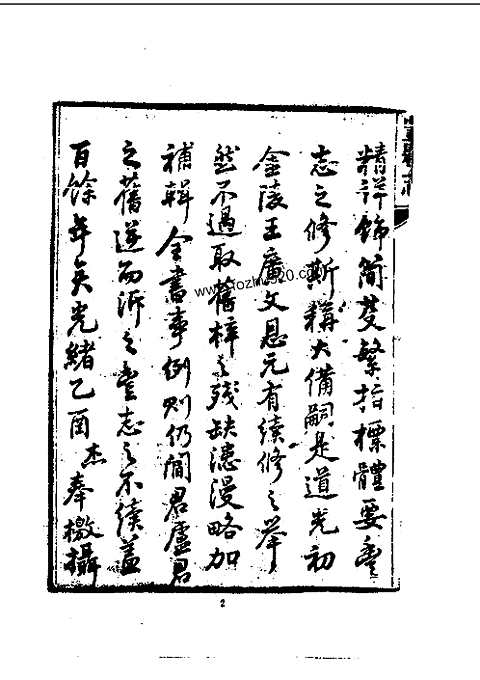 精詳飾簡芟繁指標體要豐
志之修斯稱大備嗣是道光初
金陵王廣文恩元有續修之舉
然不過取舊梓之殘缺漶漫略加
補輯全書事例則仍閻君盧君
之舊逆而泝之豐志之不續蓋
百餘年矣光緒乙酉杰奉檄攝
2